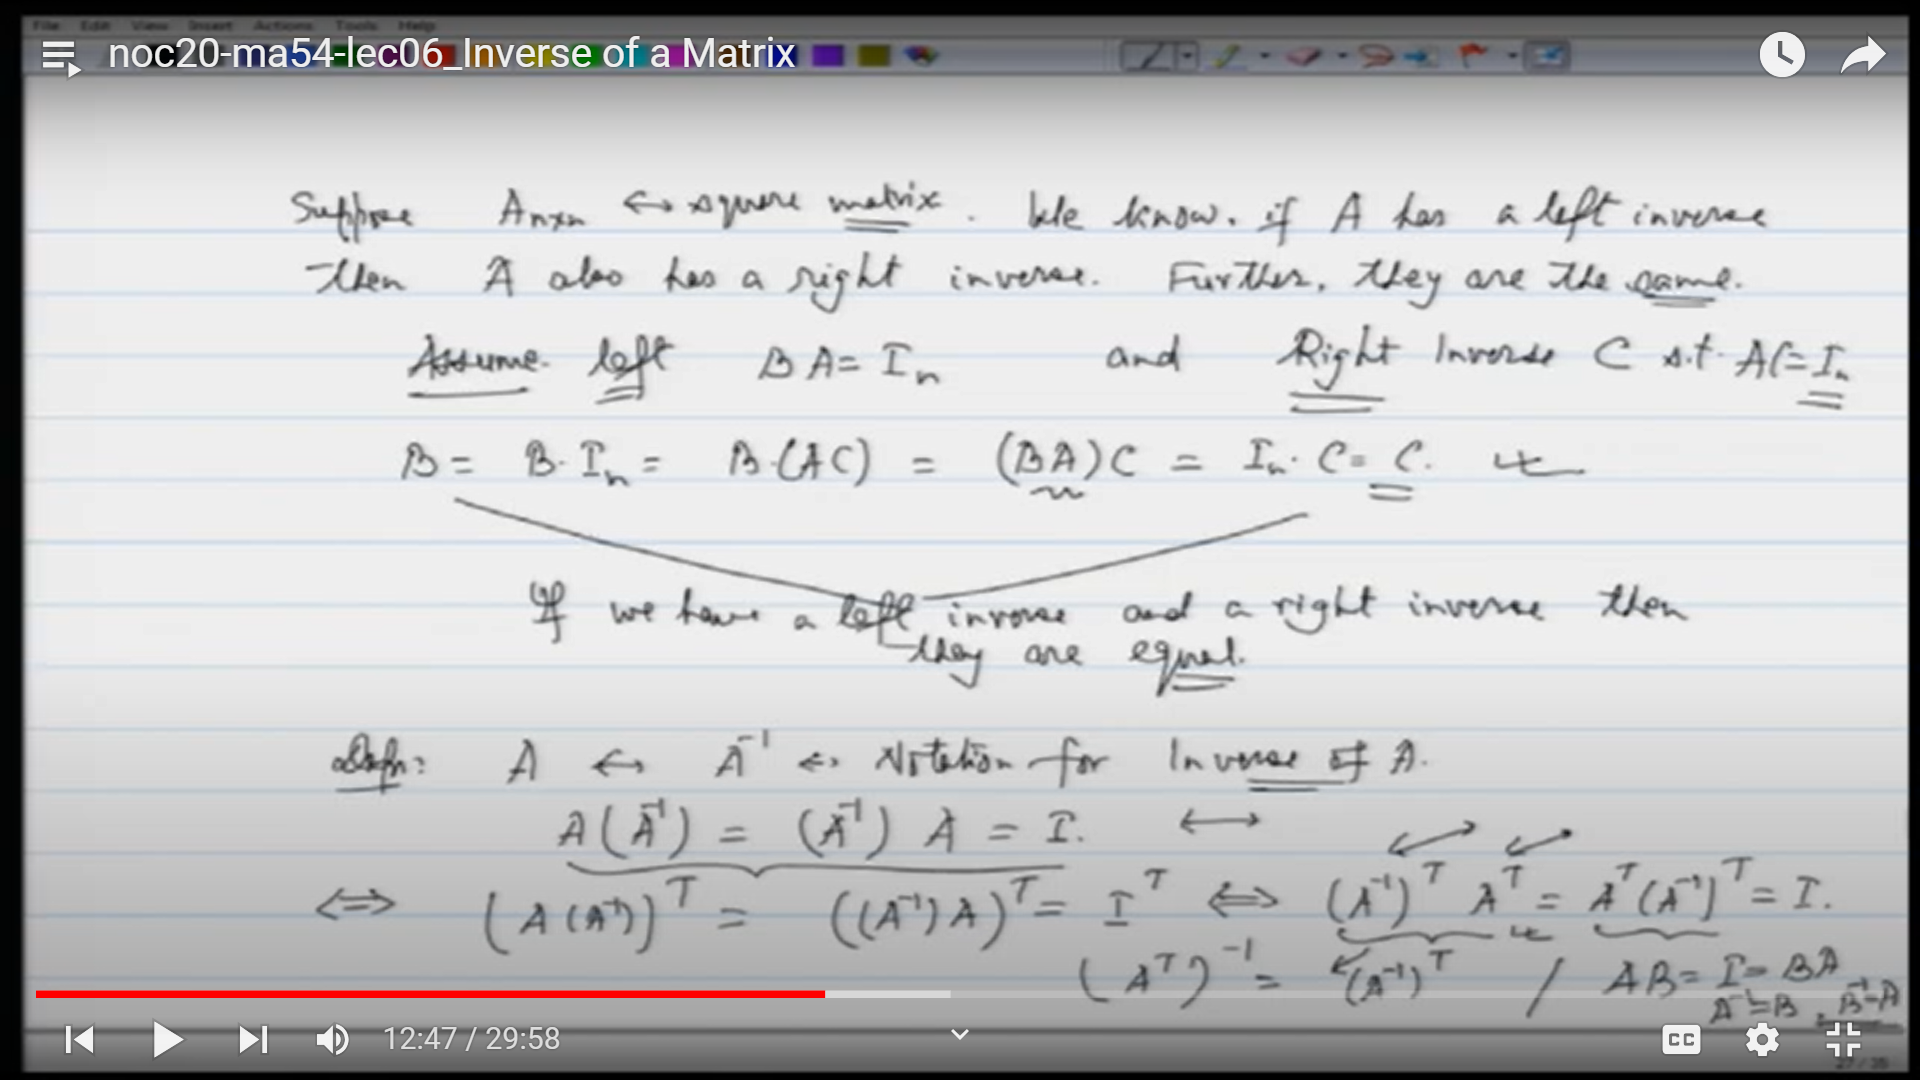 File Edit View Insert Actions Tools Help
noc20-ma54-lec06_Inverse of a Matrix
Suppose Anxn ↔ square matrix. We know, if A has a left inverse
then A also has a right inverse. Further, they are the same.
Assume left BA = In and Right Inverse C s.t. AC = In
B = B·In = B·(AC) = (BA)C = In·C = C.
If we have a left inverse and a right inverse then
they are equal.
Defn: A ↔ A⁻¹ ↔ Notation for Inverse of A.
A(A⁻¹) = (A⁻¹) A = I. ↔
⇔ (A(A⁻¹))ᵀ = ((A⁻¹)A)ᵀ = Iᵀ ⇔ (A⁻¹)ᵀ Aᵀ = Aᵀ(A⁻¹)ᵀ = I.
(Aᵀ)⁻¹ = (A⁻¹)ᵀ / AB = I = BA
A⁻¹=B, B⁻¹=A
12:47 / 29:58
CC